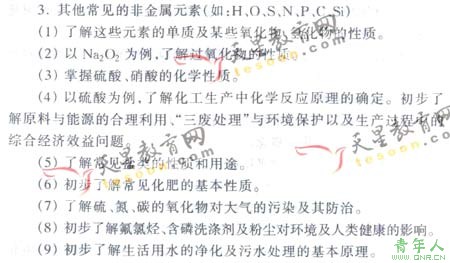 3. 其他常见的非金属元素(如:H、O、S、N、P、C、Si)
(1) 了解这些元素的单质及某些氧化物、氢化物的性质。
(2) 以 Na2O2 为例,了解过氧化物的性质。
(3) 掌握硫酸、硝酸的化学性质。
(4) 以硫酸为例,了解化工生产中化学反应原理的确定。初步了
解原料与能源的合理利用、“三废处理”与环境保护以及生产过程中的
综合经济效益问题
(5) 了解常见盐类的性质和用途。
(6) 初步了解常见化肥的基本性质。
(7) 了解硫、氮、碳的氧化物对大气的污染及其防治。
(8) 初步了解氟氯烃、含磷洗涤剂及粉尘对环境及人类健康的影响。
(9) 初步了解生活用水的净化及污水处理的基本原理。
天星教育网
tesoon.com
天星教育网
tesoon.com
天星教育网
tesoon.com
青年人
WWW.QNR.CN